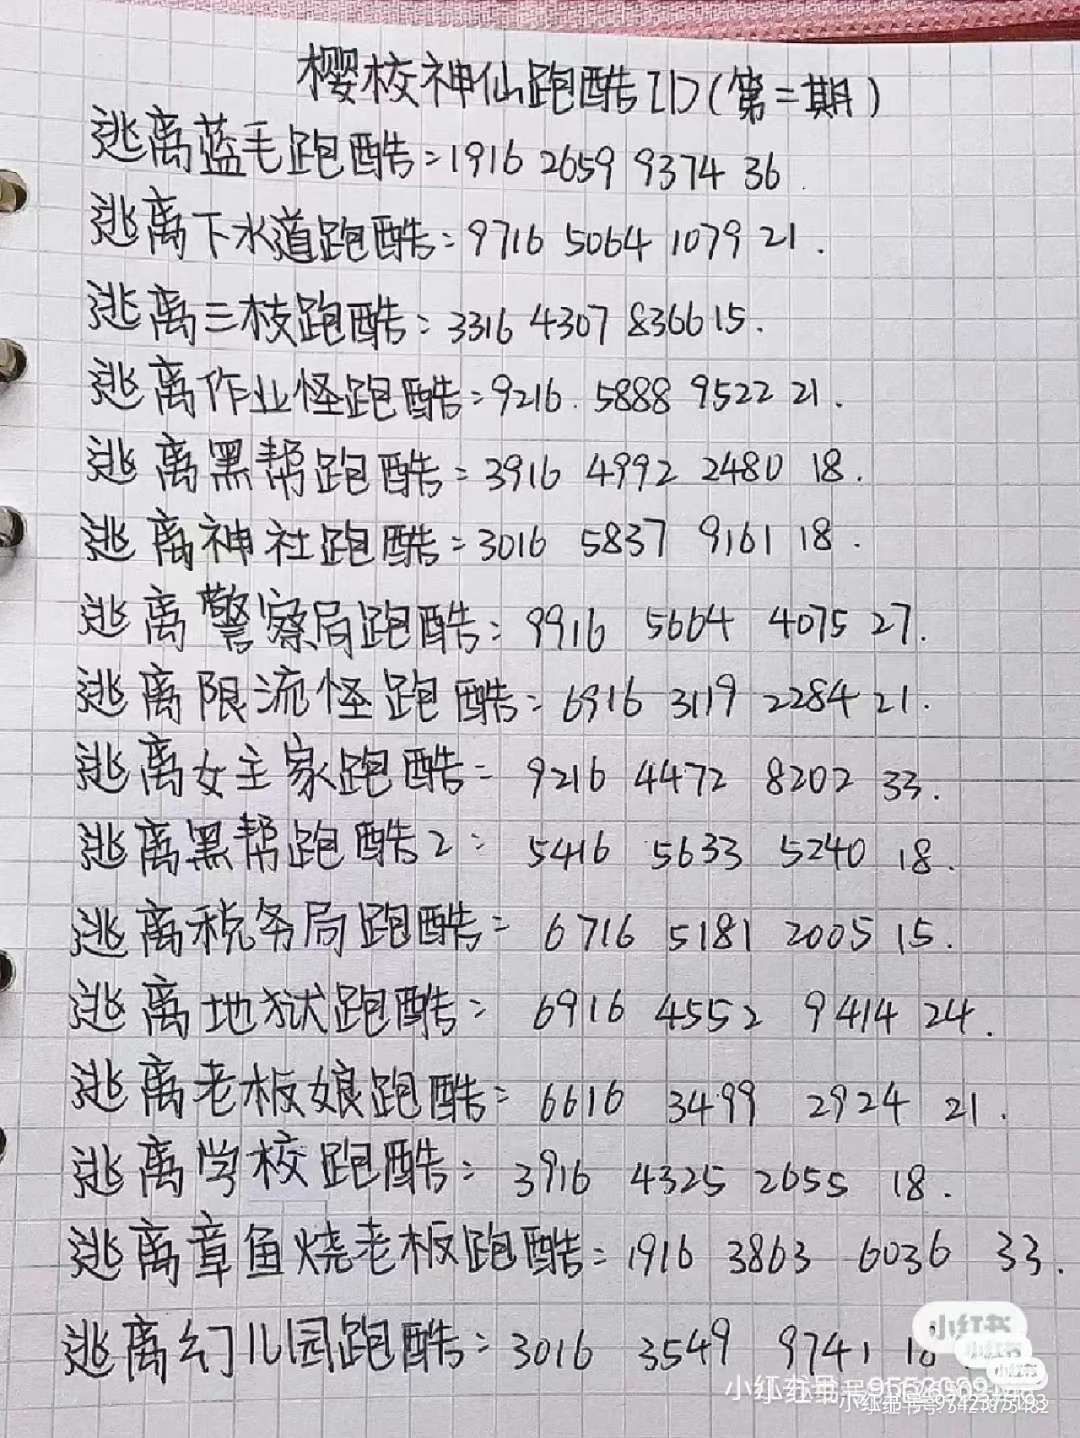 樱校神仙跑酷ID(第二期)
逃离蓝毛跑酷:1916 2659 9374 36.
逃离下水道跑酷:9716 5064 1079 21.
逃离三枝跑酷:3316 4307 8366 15.
逃离作业怪跑酷:9216.5888 9522 21.
逃离黑帮跑酷:3916 4992 2480 18.
逃离神社跑酷:3016 5837 9161 18.
逃离警察局跑酷:9916 5664 4075 27.
逃离限流怪跑酷:6916 3119 2284 21.
逃离女主家跑酷:9216 4472 8202 33.
逃离黑帮跑酷2:5416 5633 5240 18.
逃离税务局跑酷:6716 5181 2005 15.
逃离地狱跑酷:6916 4552 9414 24.
逃离老板娘跑酷:6616 3499 2924 21.
逃离学校跑酷:3916 4325 2655 18.
逃离章鱼烧老板跑酷:1916 3863 6036 33.
逃离幻儿园跑酷:3016 3549 9741 18
小红书
小红书
小红书
小红书号